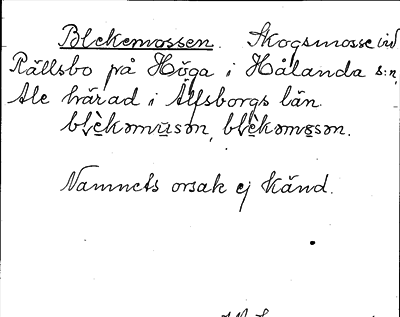 Blekemossen. Skogsmosse vid
Rällsbo på Höga i Hålanda s:n,
Ale härad i Älfsborgs län.
blèkəmūsən, blèkəmosən.
Namnets orsak ej känd.